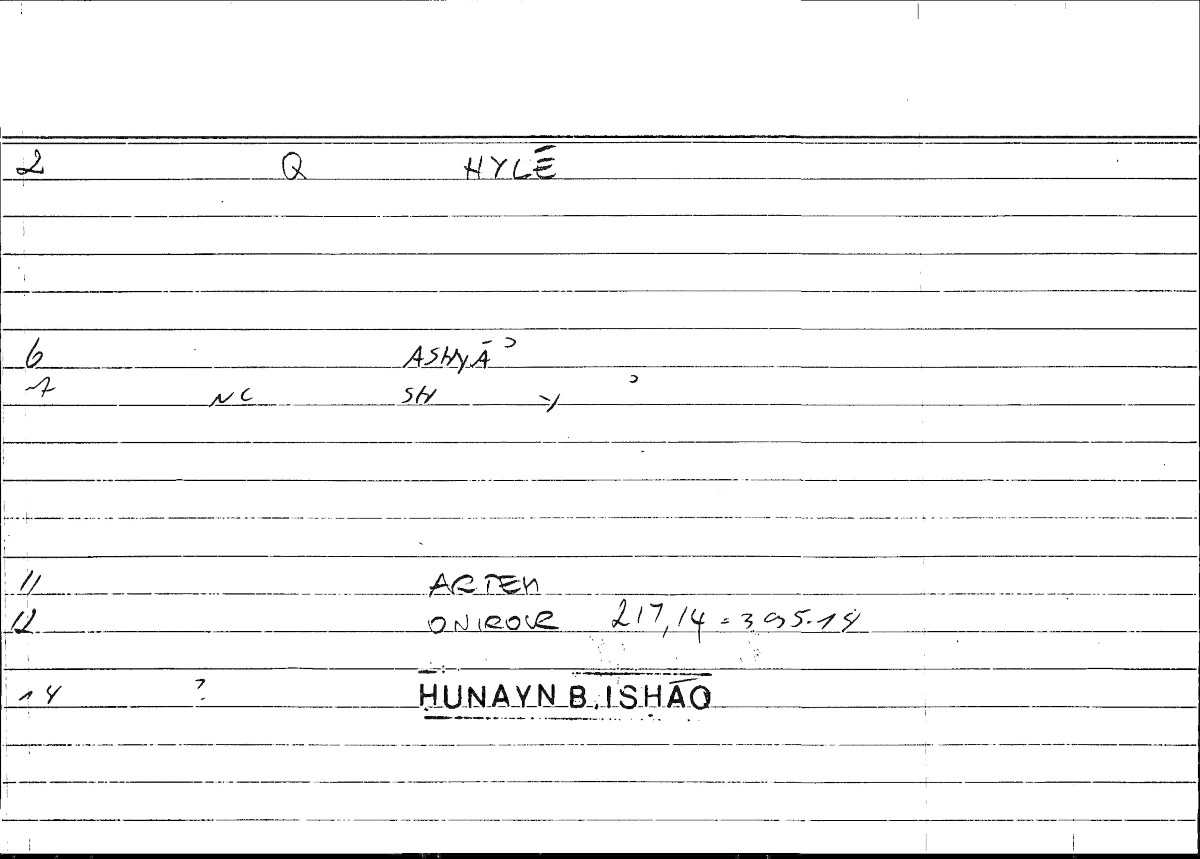 2 Q HYLĒ
6 ASHYĀʾ
7 NC SH Y ʾ
11 ARTEM
12 ONIROCR 217,14 = 395.14
14 ? ḤUNAYN B. ISḤĀQ